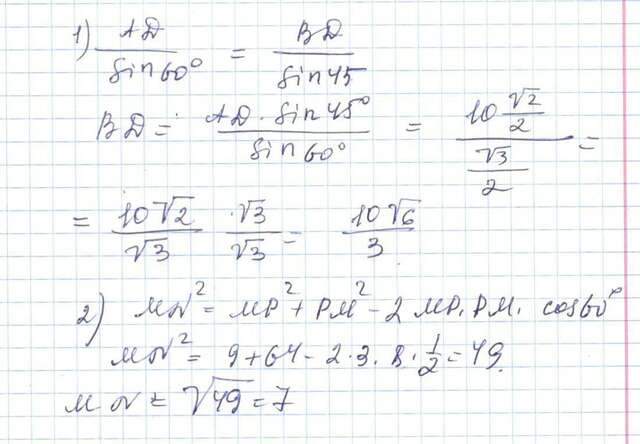 1) AD/sin60° = BD/sin45
BD = AD·sin45°/sin60° = (10 √2/2)/(√3/2) =
= 10√2/√3 · √3/√3 = 10√6/3
2) MN² = MP² + PM² - 2 MP·PM· cos60°
MN² = 9+64-2·3·8·1/2=49.
MN = √49=7